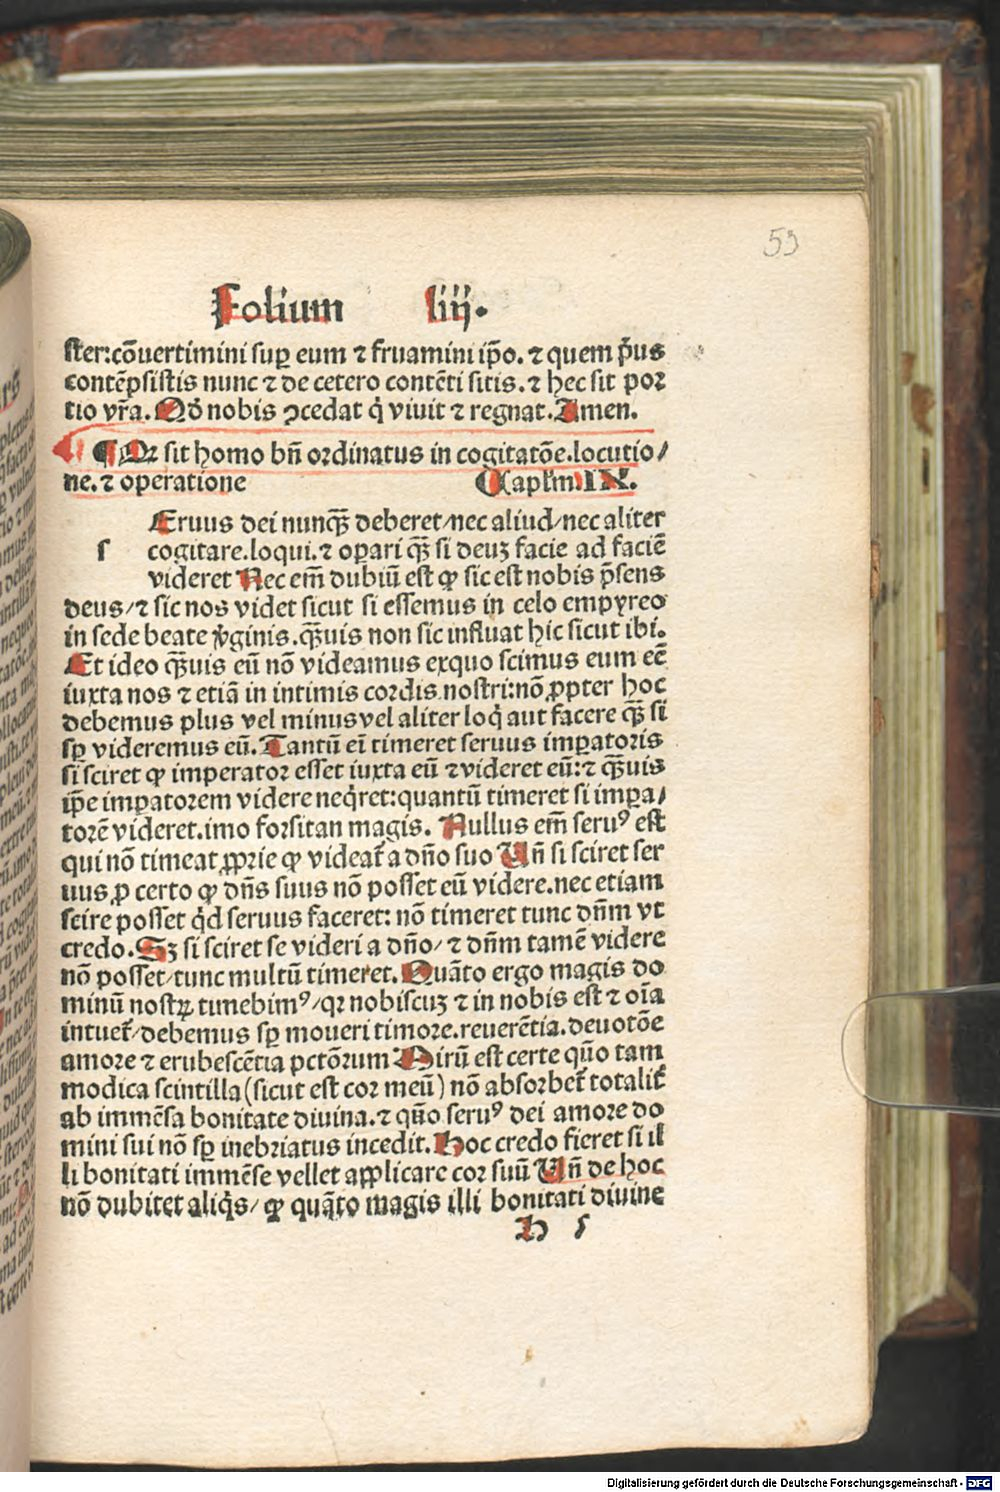 53
Folium liij.
ster:cōuertimini suꝑ eum ⁊ fruamini ip̄o. ⁊ quem p̄us
contēpsistis nunc ⁊ de cetero contēti sitis. ⁊ hec sit por
tio vr̄a. Qd̄ nobis ꝯcedat q̇ viuit ⁊ regnat. Amen.
¶ Qꝛ sit homo bn̄ ordinatus in cogitatōe.locutio/
ne. ⁊ operatione Caplm̄.IX.
Eruus dei nunqȝ̄ deberet/nec aliud/nec aliter
s cogitare.loqui. ⁊ oꝑari qȝ̄ si deuȝ facie ad faciē
videret Nec em̄ dubiū est ꝙ sic est nobis p̄sens
deus/⁊ sic nos videt sicut si essemus in celo empyreo
in sede beate v̇ginis.qȝ̄uis non sic influat hic sicut ibi.
Et ideo qȝ̄uis eū nō videamus exquo scimus eum eē
iuxta nos ⁊ etiā in intimis cordis nostri:nō ꝓpter hoc
debemus plus vel minus vel aliter loq̇ aut facere qȝ̄ si
sꝑ videremus eū. Tantū eī timeret seruus imꝑatoris
si sciret ꝙ imperator esset iuxta eū ⁊ videret eū:⁊ qȝ̄uis
ip̄e imꝑatorem videre neq̇ret:quantū timeret si imꝑa/
torē videret.imo forsitan magis. Nullus em̄ seruꝰ est
qui nō timeat ꝓprie ꝙ videat᷑ a dn̄o suo Un̄ si sciret ser
uus ꝓ certo ꝙ dn̄s suus nō posset eū videre.nec etiam
scire posset q̇d seruus faceret: nō timeret tunc dn̄m vt
credo. Sȝ si sciret se videri a dn̄o/ ⁊ dn̄m tamē videre
nō posset/tunc multū timeret. Quāto ergo magis do
minū nostrꝝ timebimꝰ/qꝛ nobiscuȝ ⁊ in nobis est ⁊ oīa
intuet᷑/debemus sꝑ moueri timore.reuerētia.deuotōe
amore ⁊ erubescētia pctōrum Mirū est certe qūo tam
modica scintilla (sicut est cor meū) nō absorbet᷑ totalit᷑
ab immēsa bonitate diuina. ⁊ qūo seruꝰ dei amore do
mini sui nō sꝑ inebriatus incedit. Hoc credo fieret si il
li bonitati immēse vellet applicare cor suū Un̄ de hoc
nō dubitet aliq̇s/ ꝙ quāto magis illi bonitati diuine
h s
Digitalisierung gefördert durch die Deutsche Forschungsgemeinschaft - DFG